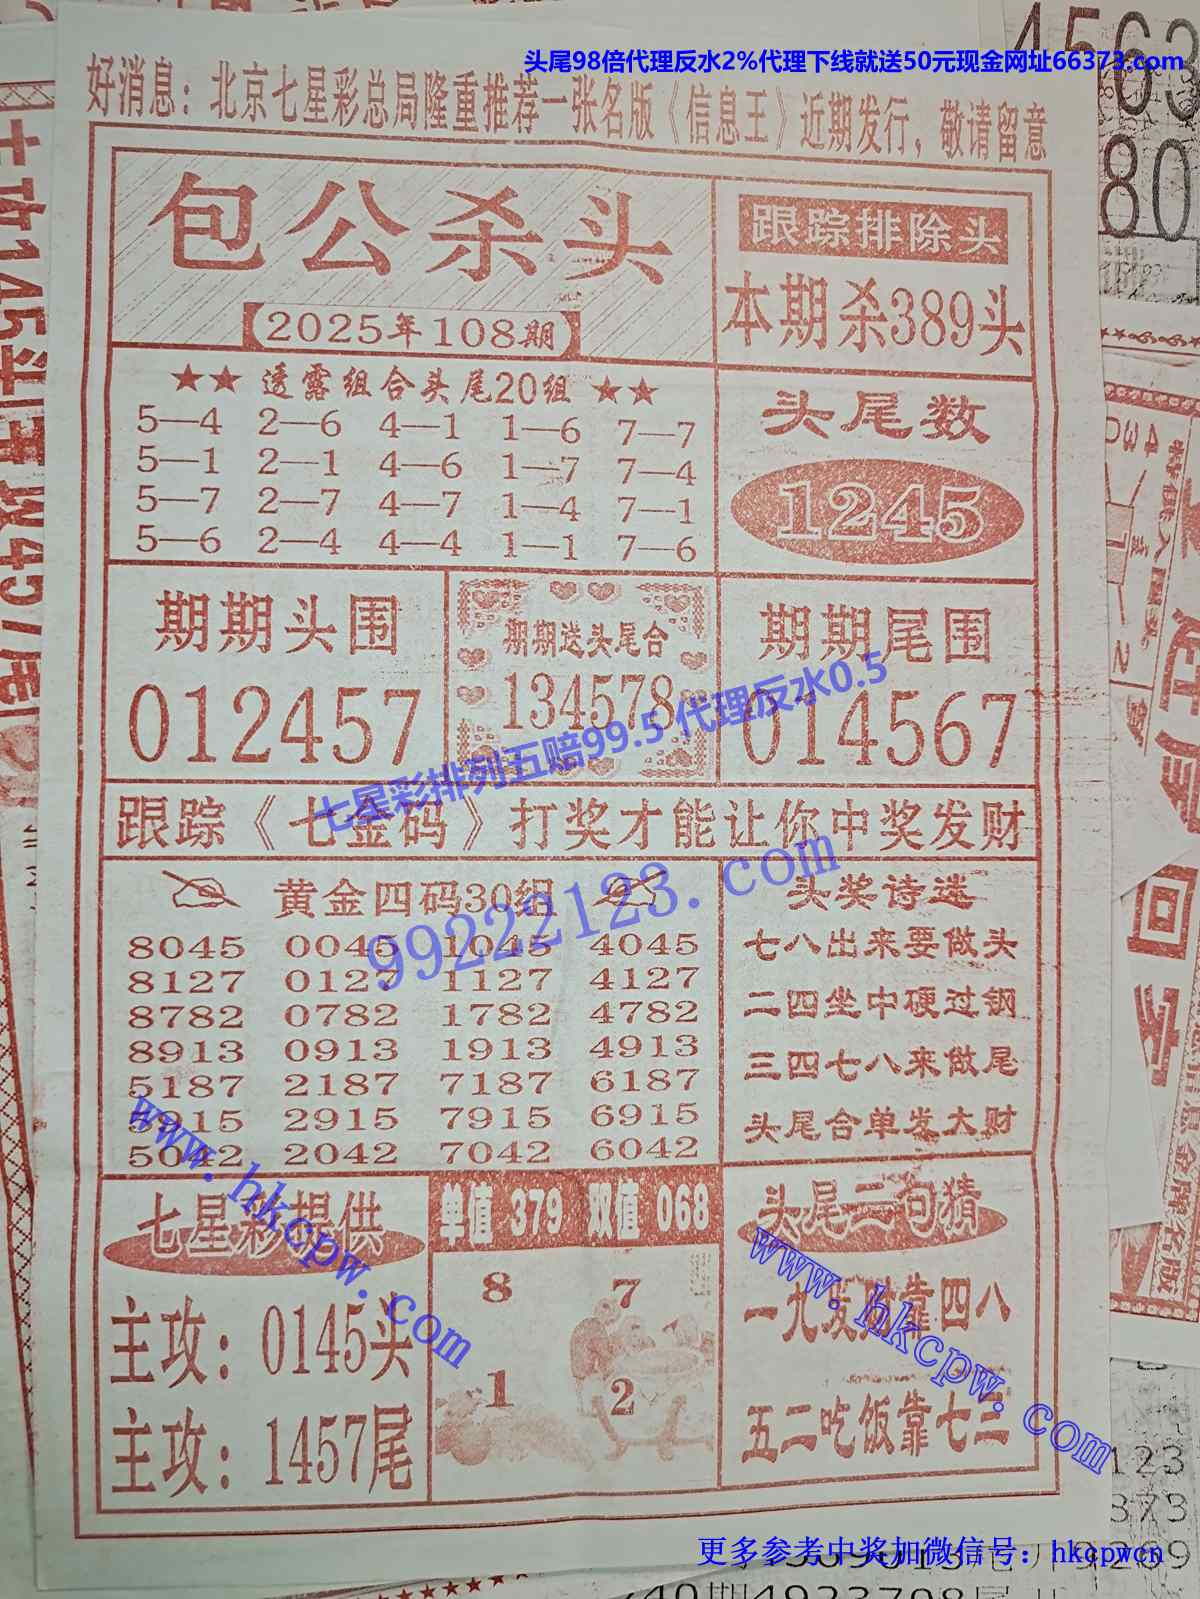 头尾98倍代理反水2%代理下线就送50元现金网址66373.com
好消息：北京七星彩总局隆重推荐一张名版《信息王》近期发行，敬请留意
包公杀头
【2025年108期】
跟踪排除头
本期杀389头
★★ 透露组合头尾20组 ★★
5—4 2—6 4—1 1—6 7—7
5—1 2—1 4—6 1—7 7—4
5—7 2—7 4—7 1—4 7—1
5—6 2—4 4—4 1—1 7—6
头尾数
1245
期期头围
012457
期期送头尾合
134578
期期尾围
014567
七星彩排列五赔99.5 代理反水0.5
跟踪《七金码》打奖才能让你中奖发财
99222123.com
黄金四码30组
8045 0045 1045 4045
8127 0127 1127 4127
8782 0782 1782 4782
8913 0913 1913 4913
5187 2187 7187 6187
5915 2915 7915 6915
5042 2042 7042 6042
头奖诗选
七八出来要做头
二四坐中硬过钢
三四七八来做尾
头尾合单发大财
www.hkcpw.com
七星彩提供
主攻：0145头
主攻：1457尾
单值 379 双值 068
8 7
1 2
头尾二句猜
一九发财靠四八
五二吃饭靠七三
www.hkcpw.com
更多参考中奖加微信号：hkcpwcn
4563
80